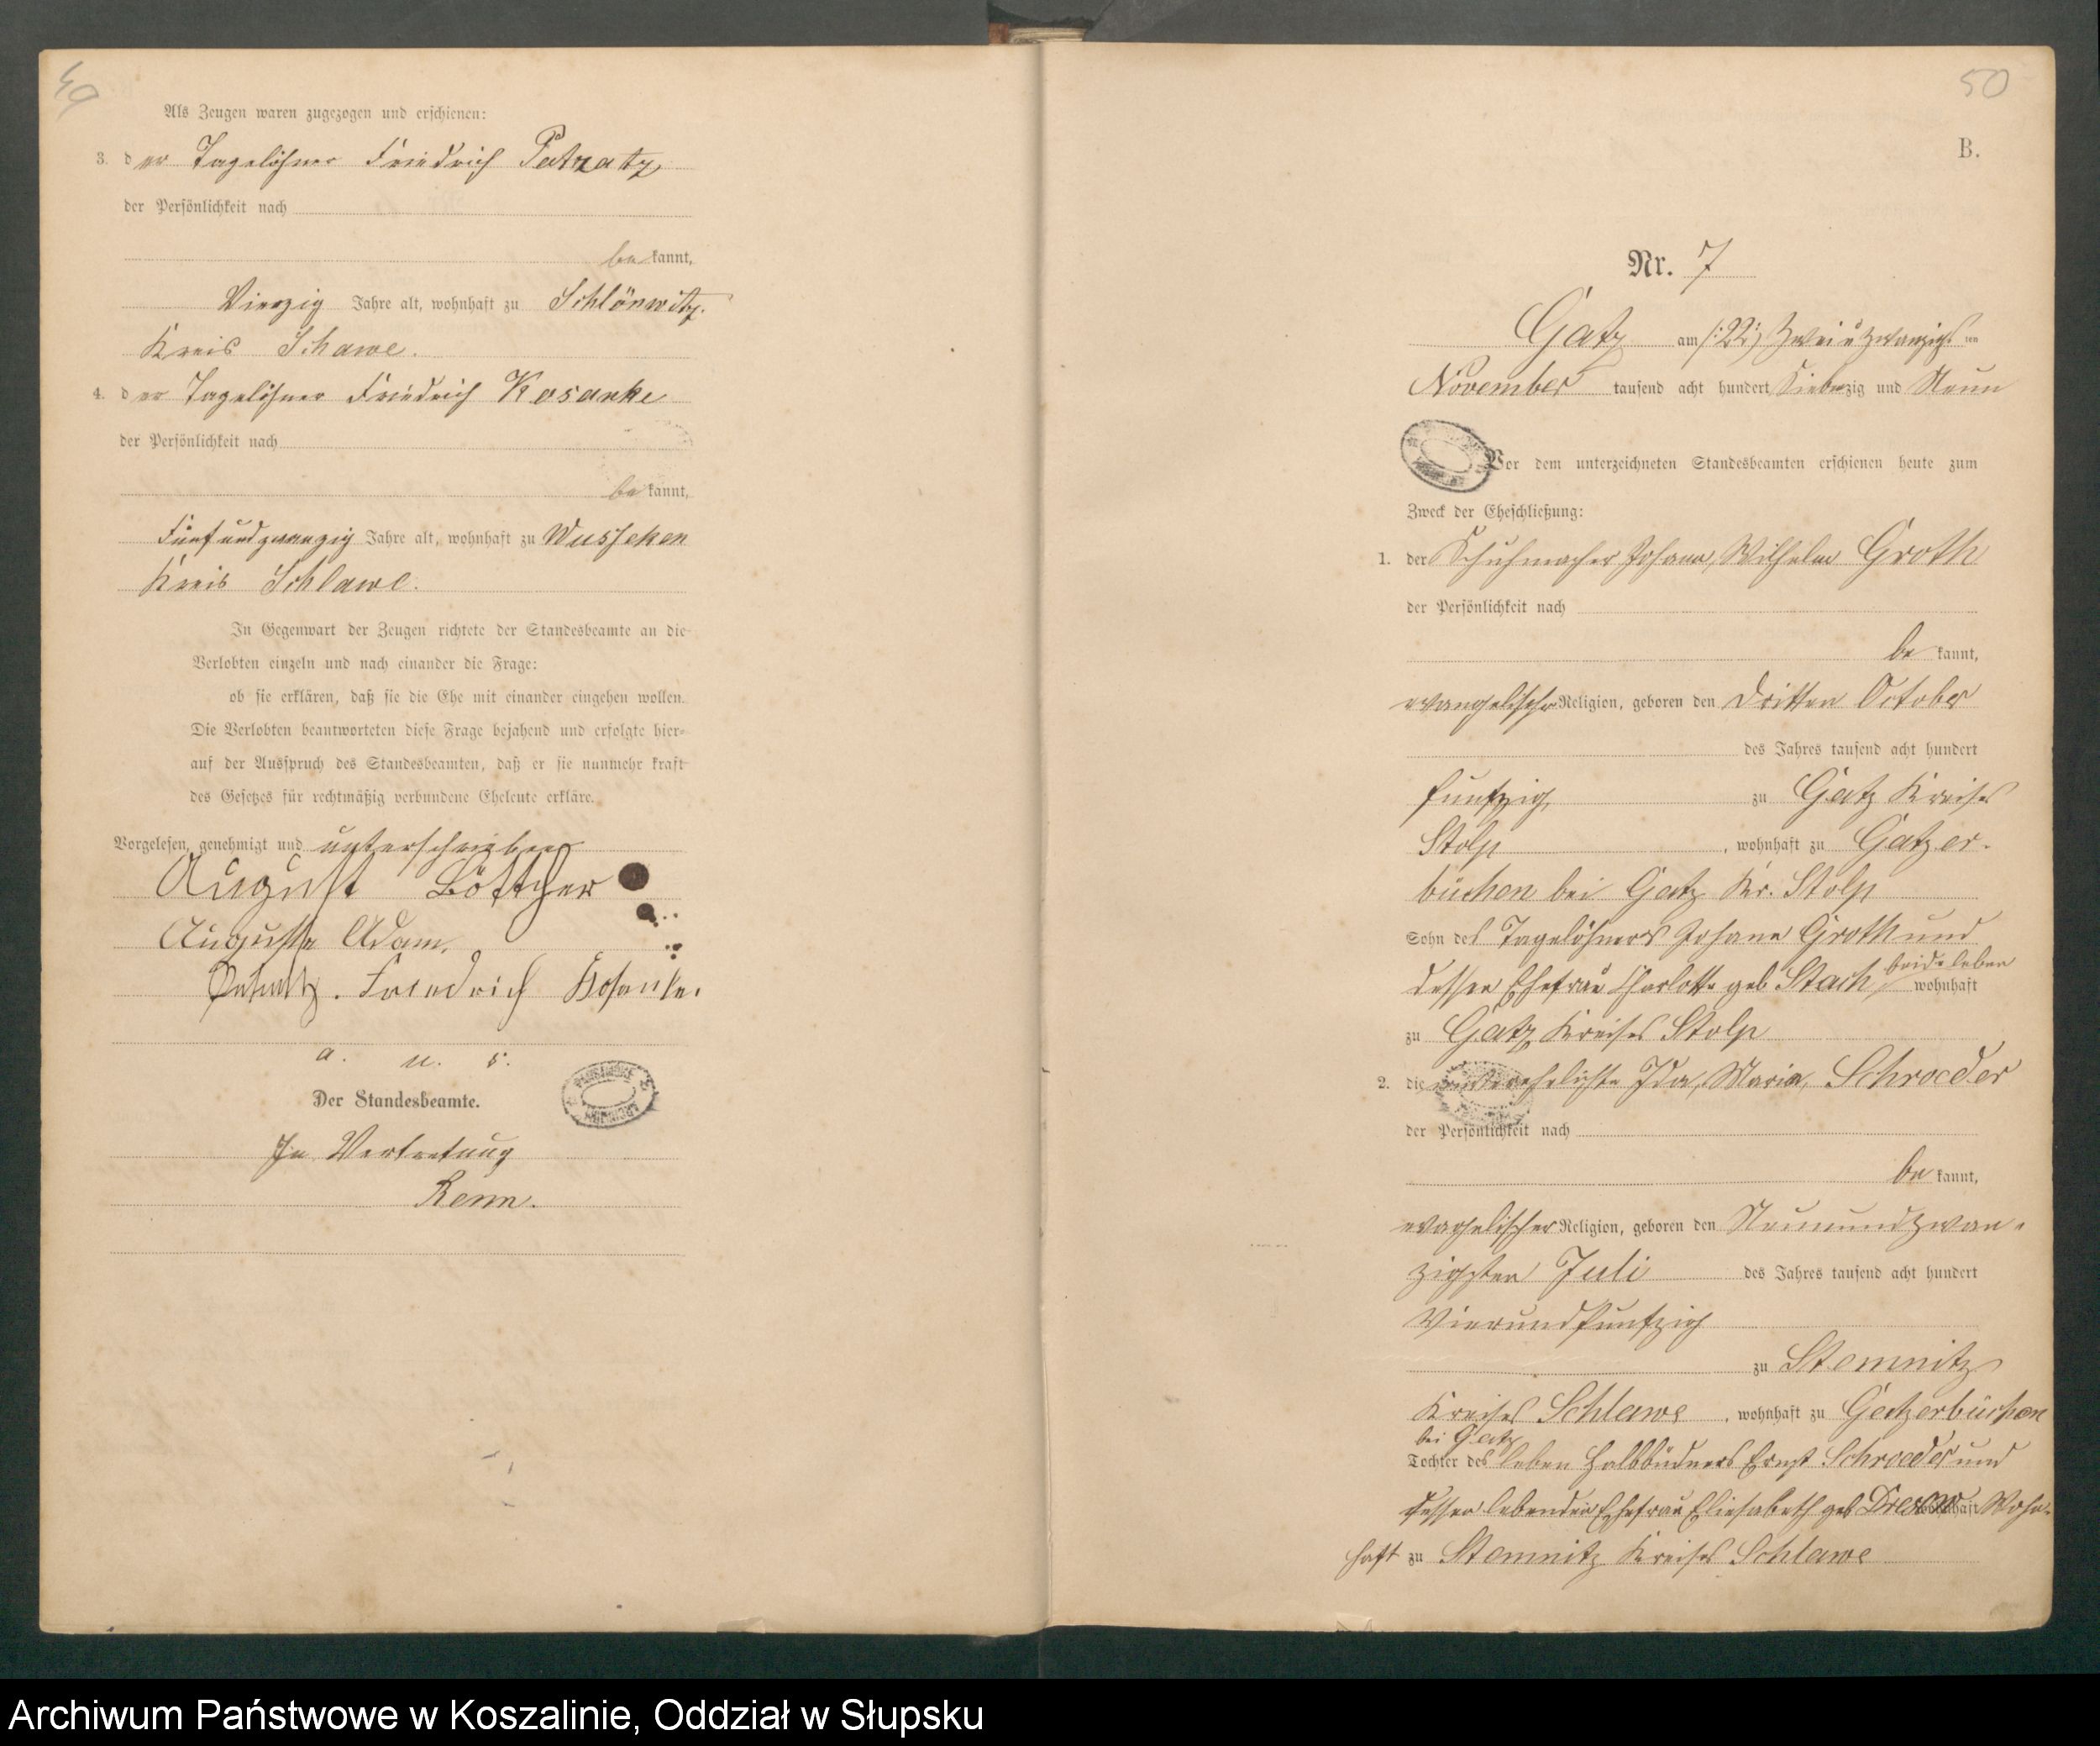 49
Als Zeugen waren zugezogen und erschienen:
3. der Tagelöhner Friedrich Patzatz
der Persönlichkeit nach
bekannt,
Vierzig Jahre alt, wohnhaft zu Schlönwitz.
Kreis Schawe.
4. der Tagelöhner Friedrich Kosanke
der Persönlichkeit nach
bekannt,
Fünfundzwanzig Jahre alt, wohnhaft zu Wusseken
Kreis Schlawe.
In Gegenwart der Zeugen richtete der Standesbeamte an die
Verlobten einzeln und nach einander die Frage:
ob sie erklären, daß sie die Ehe mit einander eingehen wollen.
Die Verlobten beantworteten diese Frage bejahend und erfolgte hier-
auf der Ausspruch des Standesbeamten, daß er sie nunmehr kraft
des Gesetzes für rechtmäßig verbundene Eheleute erkläre.
Vorgelesen, genehmigt und unterschrieben
August Böttcher
Auguste Adam.
Friedrich Kosanke.
a. u. s.
Der Standesbeamte.
In Vertretung
Renn.
50
B.
Nr. 7
Gatz am /:22:/ Zwei u Zwanzigsten
November tausend acht hundert Siebenzig und Neun
Vor dem unterzeichneten Standesbeamten erschienen heute zum
Zweck der Eheschließung:
1. der Schuhmacher Johann, Wilhelm Groth
der Persönlichkeit nach
bekannt,
evangelischer Religion, geboren den Dritten October
des Jahres tausend acht hundert
funfzig zu Gatz Kreises
Stolp, wohnhaft zu Gatzer-
büchen bei Gatz Kr. Stolp
Sohn des Tagelöhners Johann Groth und
dessen Ehefrau Charlotte geb Stach, beide leben wohnhaft
zu Gatz Kreises Stolp
2. die unverehelichte Ida, Maria, Schroeder
der Persönlichkeit nach
bekannt,
evangelischer Religion, geboren den Neunundzwan-
zigsten Juli des Jahres tausend acht hundert
Vierundfunfzig
zu Stemnitz
Kreises Schlawe, wohnhaft zu Gatzerbüchen
bei Gatz
Tochter des leben Halbbüdners Ernst Schroeder und
dessen lebenden Ehefrau Eliesabeth geb Dresow wohnhaft Wohn-
haft zu Stemnitz Kreises Schlawe
Archiwum Państwowe w Koszalinie, Oddział w Słupsku